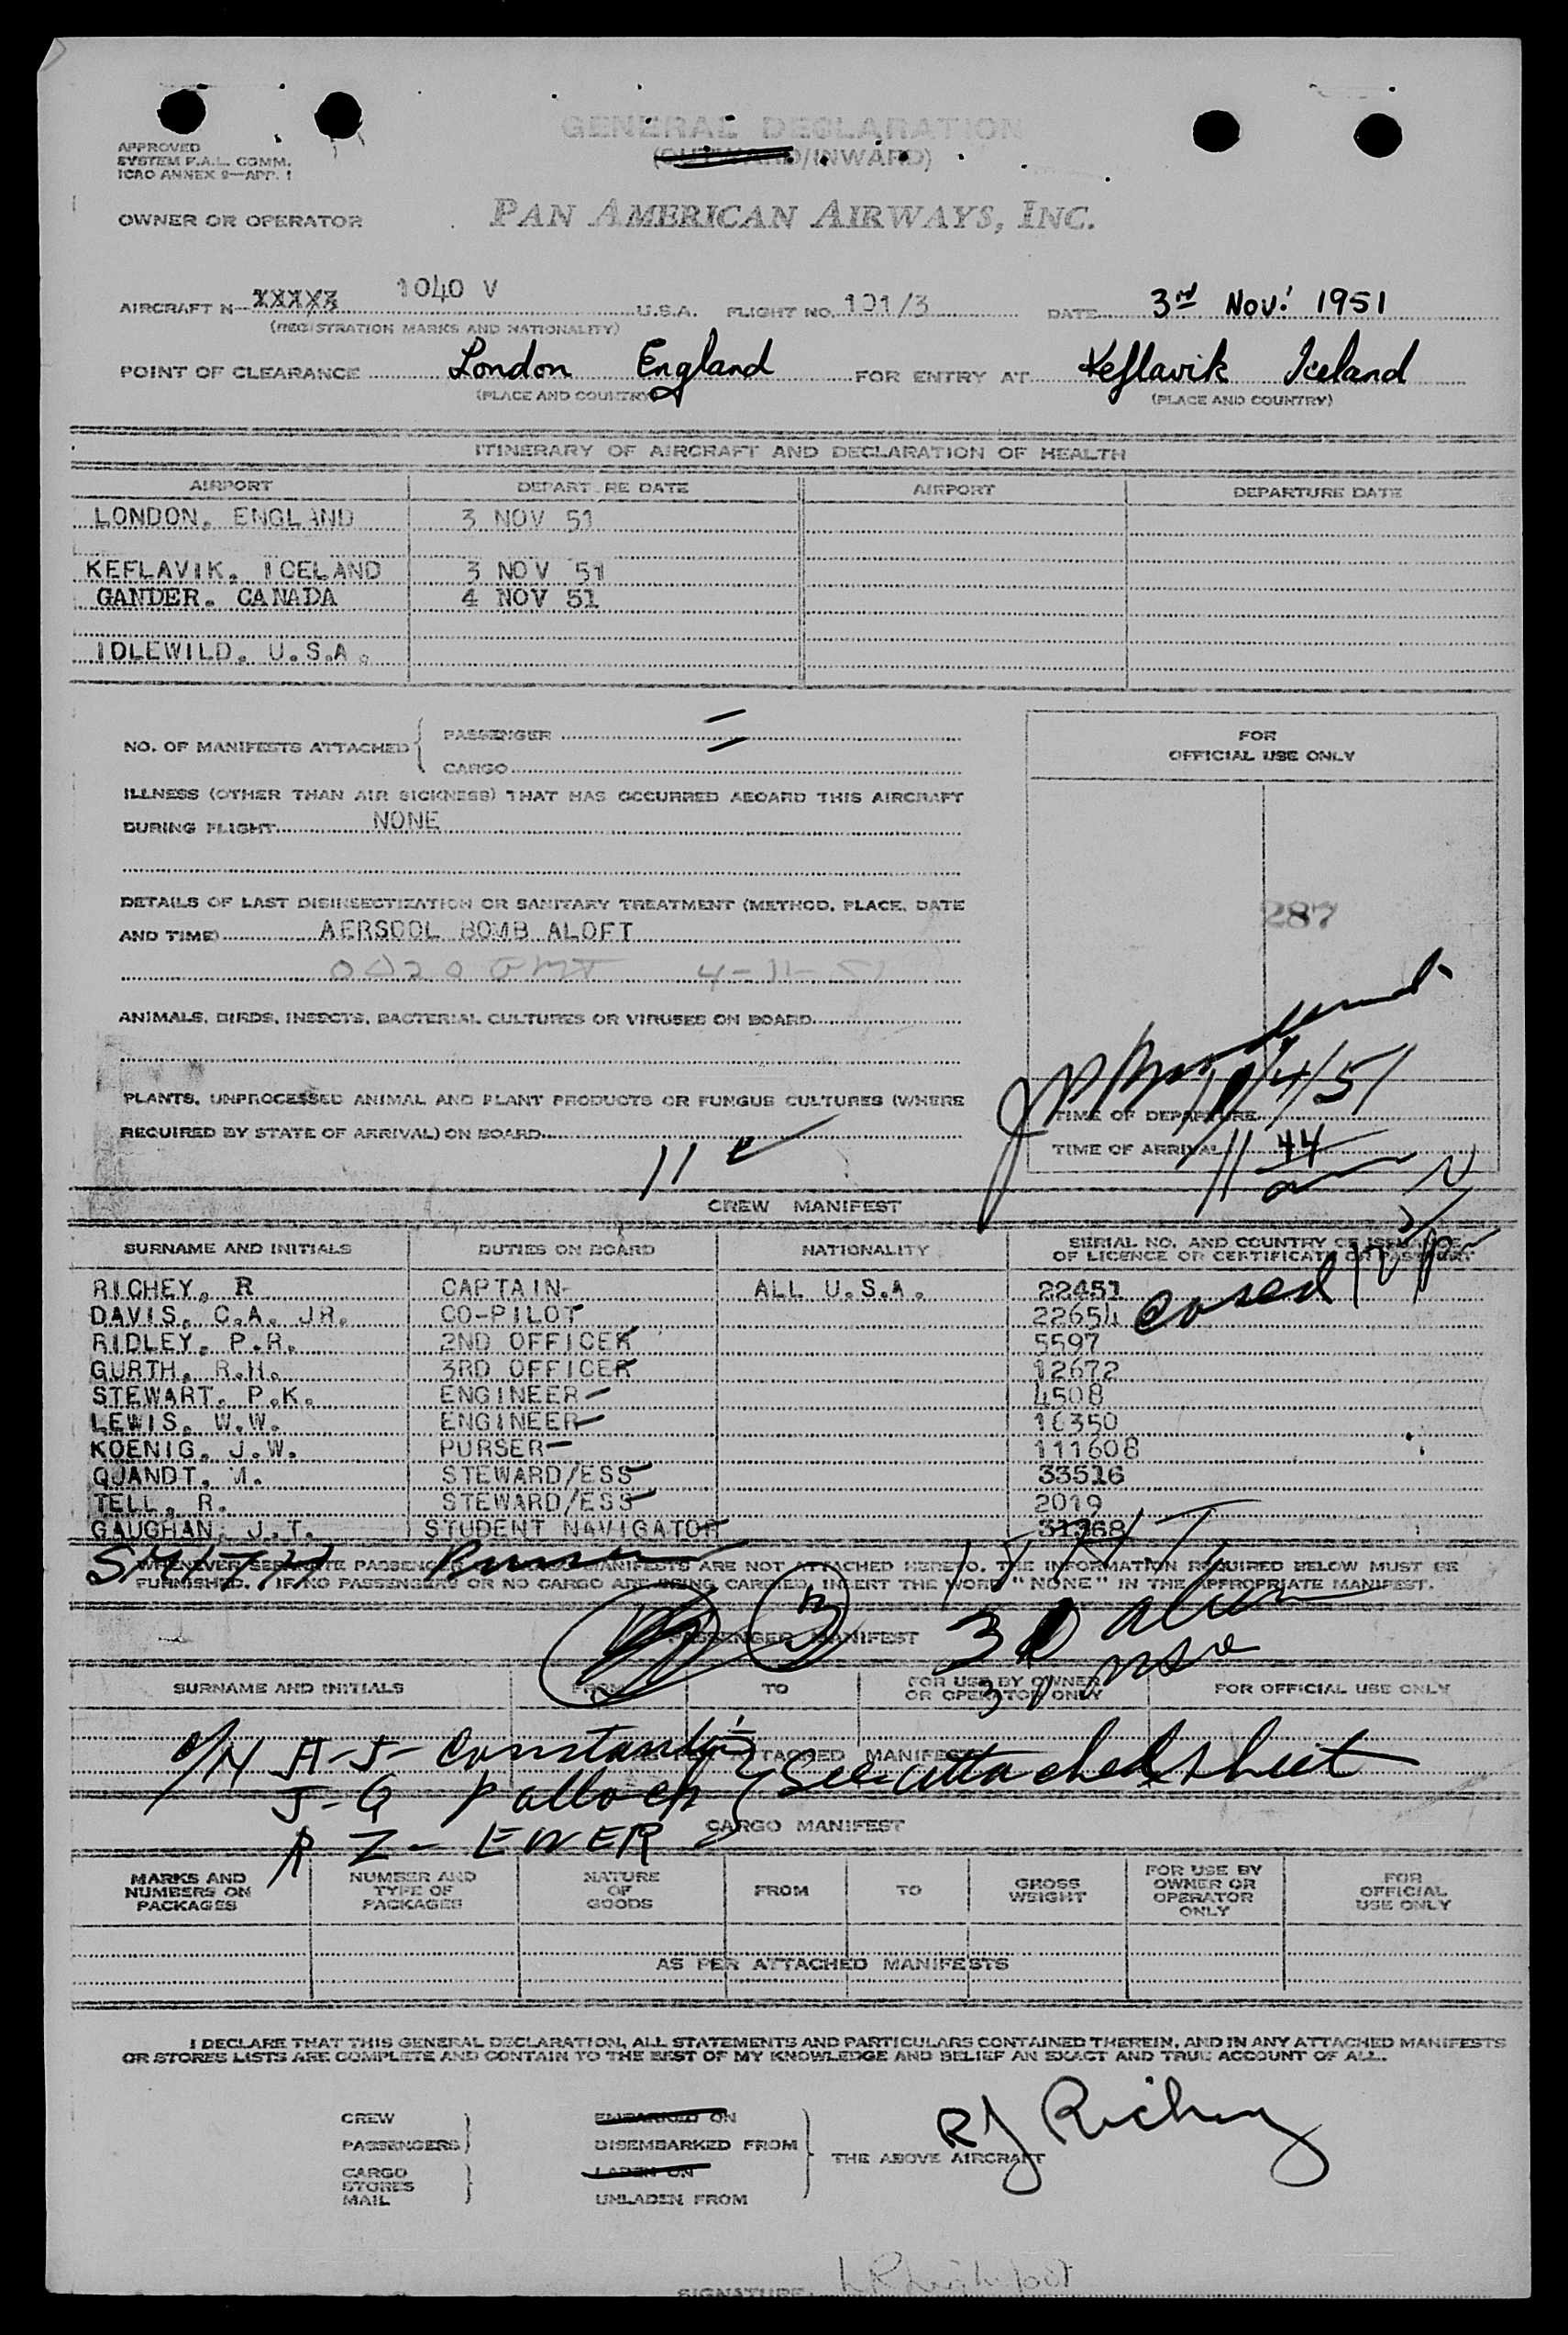 GENERAL DECLARATION
(OUTWARD/INWARD)
APPROVED
SYSTEM F.A.L. COMM.
ICAO ANNEX 9—APP. 1
OWNER OR OPERATOR PAN AMERICAN AIRWAYS, INC.
AIRCRAFT N XXXXX 1040 V U.S.A. FLIGHT NO. 101/3 DATE 3rd Nov. 1951
(REGISTRATION MARKS AND NATIONALITY)
POINT OF CLEARANCE London England FOR ENTRY AT Keflavik Iceland
(PLACE AND COUNTRY) (PLACE AND COUNTRY)
ITINERARY OF AIRCRAFT AND DECLARATION OF HEALTH
AIRPORT DEPARTURE DATE AIRPORT DEPARTURE DATE
LONDON, ENGLAND 3 NOV 51
KEFLAVIK, ICELAND 3 NOV 51
GANDER. CANADA 4 NOV 51
IDLEWILD, U.S.A.
NO. OF MANIFESTS ATTACHED { PASSENGER
CARGO
FOR
OFFICIAL USE ONLY
ILLNESS (OTHER THAN AIR SICKNESS) THAT HAS OCCURRED ABOARD THIS AIRCRAFT
DURING FLIGHT NONE
DETAILS OF LAST DISINSECTIZATION OR SANITARY TREATMENT (METHOD, PLACE, DATE
AND TIME) AERSOOL BOMB ALOFT
287
GMT 4-11-51
ANIMALS, BIRDS, INSECTS, BACTERIAL CULTURES OR VIRUSES ON BOARD
11/4/51
PLANTS, UNPROCESSED ANIMAL AND PLANT PRODUCTS OR FUNGUS CULTURES (WHERE
REQUIRED BY STATE OF ARRIVAL) ON BOARD
TIME OF DEPARTURE
TIME OF ARRIVAL 11 44
11
CREW MANIFEST
SURNAME AND INITIALS DUTIES ON BOARD NATIONALITY SERIAL NO. AND COUNTRY OF ISSUANCE
OF LICENCE OR CERTIFICATE OR PASSPORT
RICHEY, R CAPTAIN ALL U.S.A. 22451
DAVIS, C.A. JR. CO-PILOT 22654
RIDLEY, P.R. 2ND OFFICER 5597
GURTH, R.H. 3RD OFFICER 12672
STEWART, P.K. ENGINEER 4508
LEWIS, W.W. ENGINEER 16350
KOENIG, J.W. PURSER 111608
QUANDT, M. STEWARD/ESS 33516
TELL, R. STEWARD/ESS 2019
GAUGHAN, J.T. STUDENT NAVIGATOR 31368
WHENEVER SEPARATE PASSENGER OR CARGO MANIFESTS ARE NOT ATTACHED HERETO, THE INFORMATION REQUIRED BELOW MUST BE
FURNISHED. IF NO PASSENGERS OR NO CARGO ARE BEING CARRIED, INSERT THE WORD "NONE" IN THE APPROPRIATE MANIFEST.
PASSENGER MANIFEST
SURNAME AND INITIALS FROM TO FOR USE BY OWNER
OR OPERATOR ONLY FOR OFFICIAL USE ONLY
ATTACHED MANIFEST
See attached sheet
EWER
CARGO MANIFEST
MARKS AND
NUMBERS ON
PACKAGES
NUMBER AND
TYPE OF
PACKAGES
NATURE
OF
GOODS
FROM
TO
GROSS
WEIGHT
FOR USE BY
OWNER OR
OPERATOR
ONLY
FOR
OFFICIAL
USE ONLY
AS PER ATTACHED MANIFESTS
I DECLARE THAT THIS GENERAL DECLARATION, ALL STATEMENTS AND PARTICULARS CONTAINED THEREIN, AND IN ANY ATTACHED MANIFESTS
OR STORES LISTS ARE COMPLETE AND CONTAIN TO THE BEST OF MY KNOWLEDGE AND BELIEF AN EXACT AND TRUE ACCOUNT OF ALL.
CREW EMBARKED ON
PASSENGERS DISEMBARKED FROM
THE ABOVE AIRCRAFT RJ Richey
CARGO LADEN ON
STORES
MAIL UNLADEN FROM
SIGNATURE